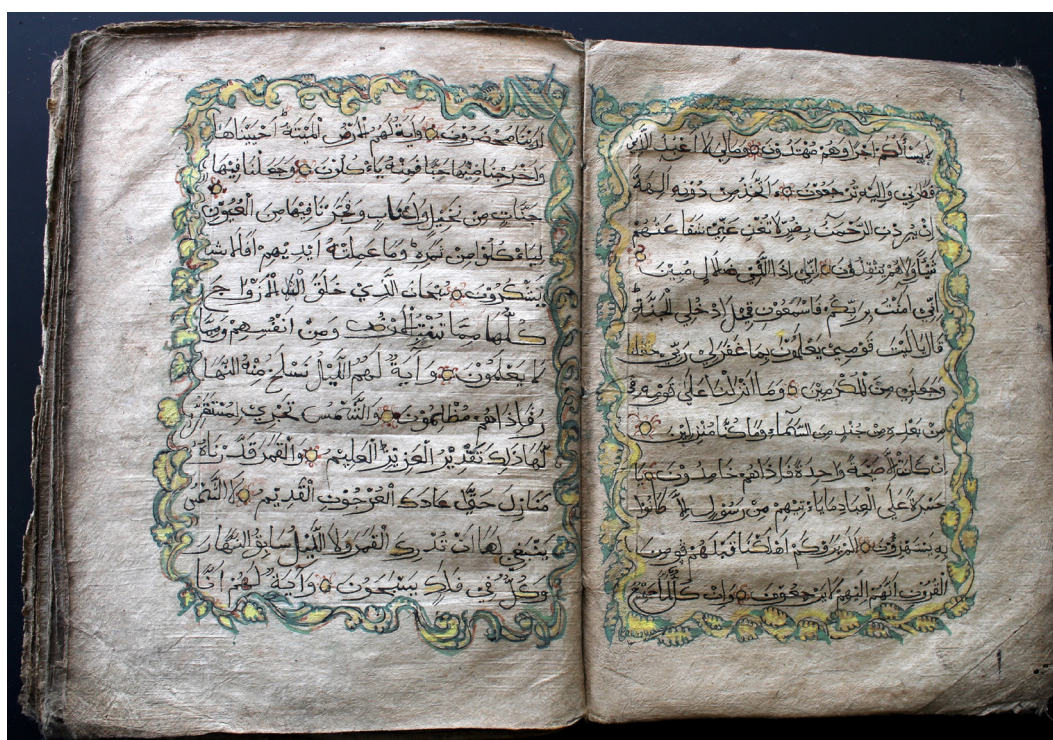 لا يسألكم اجرا وهم مهتدون وما لي لا اعبد الذي
فطرني واليه ترجعون اتخذ من دونه الهة
ان يردن الرحمن بضر لا تغن عني شفاعتهم
شيئا ولا هم ينقذون اني اذا لفي ضلال مبين
اني امنت بربكم فاسمعون قيل ادخل الجنة
قال ياليت قومي يعلمون بما غفر لي ربي
وجعلني من المكرمين وما انزلنا على قومه
من بعده من جند من السماء وما كنا منزلين
ان كانت الا صيحة واحدة فاذاهم خامدون يا
حسرة على العباد ما ياتيهم من رسول الا كانوا
به يستهزون الم يروا كم اهلكنا قبلهم من
القرون انهم اليهم لا يرجعون وان كل لما جميع
لدينا محضرون واية لهم الارض الميتة احييناها
واخرجنا منها حبا فمنه ياءكلون وجعلنا فيها
جنات من نخيل واعناب وفجرنا فيها من العيون
لياءكلوا من ثمره وما عملته ايديهم افلا
يشكرون سبحان الذي خلق الازواج
كلها مما تنبت الارض ومن انفسهم ومما
لا يعلمون واية لهم الليل نسلخ منه النها
ر فاذاهم مظلمون والشمس تجري لمستقر
لها ذلك تقدير العزيز العليم والقمر قدرناه
منازل حتى عاد ك العرجون القديم لا الشمس
ينبغي لها ان تدرك القمر ولا الليل سابق النهار
وكل في فلك يسبحون واية لهم انا